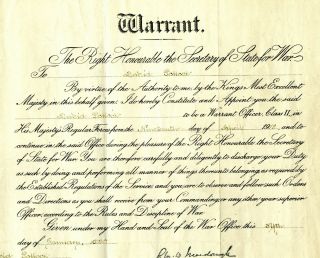 Warrant.
The Right Honourable the Secretary of State for War
To
By virtue of the Authority to me, by the King's Most Excellent
Majesty in this behalf given: I do hereby Constitute and Appoint you, the said
to be a Warrant Officer, Class II, in
His Majesty's Regular Forces from the day of and to
continue in the said Office during the pleasure of the Right Honourable the Secretary
of State for War. You are therefore carefully and diligently to discharge your Duty
as such by doing and performing all manner of things thereunto belonging as required by
the Established Regulations of the Service, and you are to observe and follow such Orders
and Directions as you shall receive from your Commanding or any other your superior
Officer, according to the Rules and Discipline of War.
Given under my Hand and Seal of the War Office this
day of January